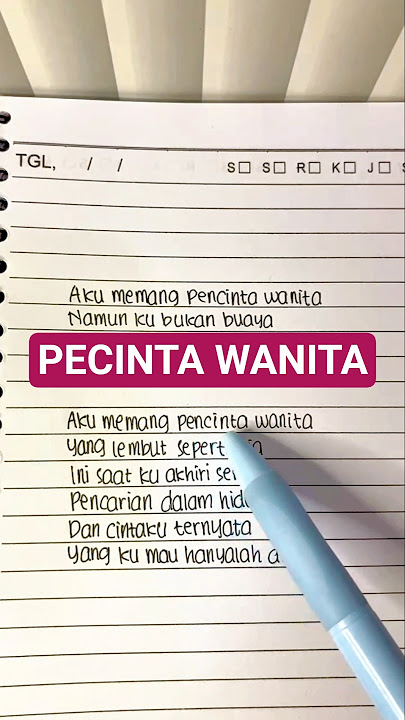 TGL, / /
S☐ S☐ R☐ K☐ J☐ S
Aku memang pencinta wanita
Namun ku bukan buaya
PECINTA WANITA
Aku memang pencinta wanita
Yang lembut
Ini saat ku akhiri
Pencarian dalam
Dan cintaku ternyata
Yang ku mau hanyalah